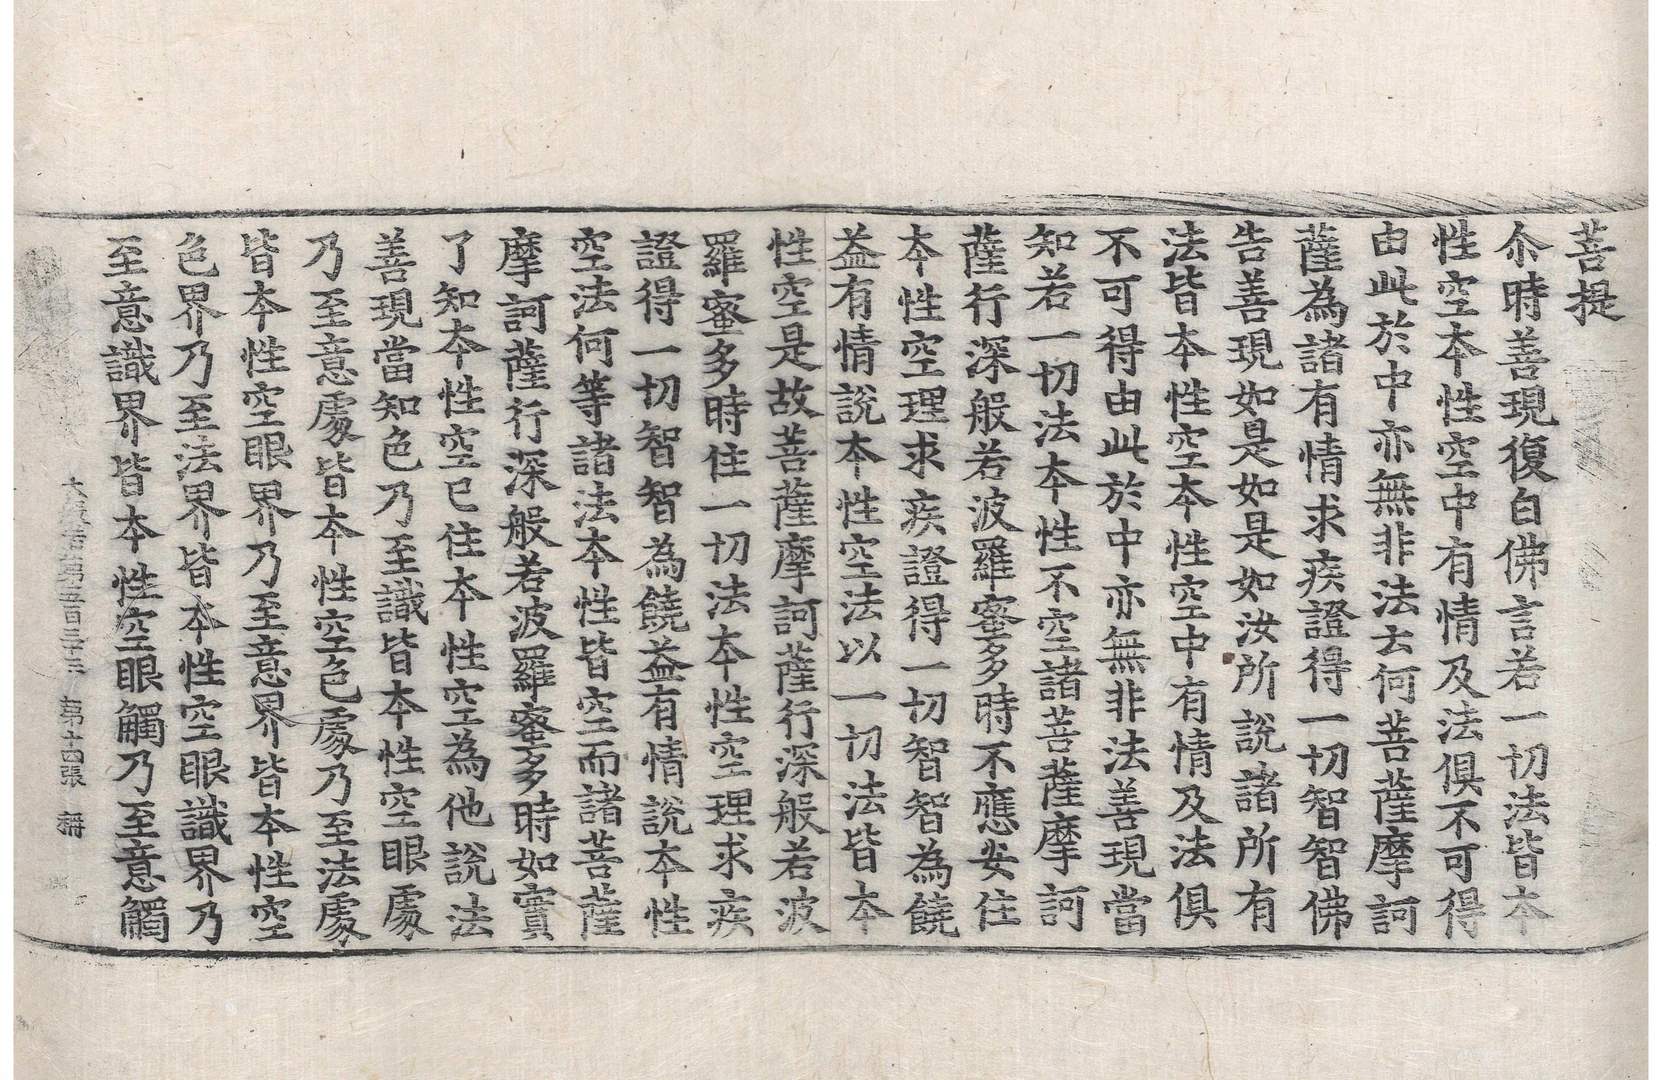 菩提
尒時善現復白佛言若一切法皆本
性空本性空中有情及法俱不可得
由此於中亦無非法云何菩薩摩訶
薩為諸有情求疾證得一切智智佛
告善現如是如是如汝所說諸所有
法皆本性空本性空中有情及法俱
不可得由此於中亦無非法善現當
知若一切法本性不空諸菩薩摩訶
薩行深般若波羅蜜多時不應安住
本性空理求疾證得一切智智為饒
益有情說本性空法以一切法皆本
性空是故菩薩摩訶薩行深般若波
羅蜜多時住一切法本性空理求疾
證得一切智智為饒益有情說本性
空法何等諸法本性皆空而諸菩薩
摩訶薩行深般若波羅蜜多時如實
了知本性空已住本性空為他說法
善現當知色乃至識皆本性空眼處
乃至意處皆本性空色處乃至法處
皆本性空眼界乃至意界皆本性空
色界乃至法界皆本性空眼識界乃
至意識界皆本性空眼觸乃至意觸
大般若第五百三十三 第十四張 稱